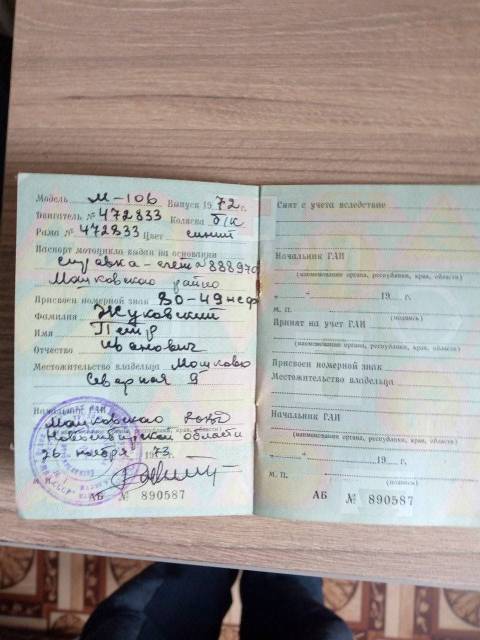 Модель М-106 Выпуск 1972 г.
Двигатель № 472833 Коляска б/к
Рама № 472833 Цвет синий
Паспорт мотоцикла выдан на основании
справка-счет 888970
Мошковское райпо
Присвоен номерной знак 80-49 нсф
Фамилия Жуковский
Имя Петр
Отчество Иванович
Местожительство владельца Мошково
Северная 9
Начальник ГАИ
Мошковского РОВД
Новосибирской области
26 ноября 1973 г.
АБ № 890587
Снят с учета вследствие
Начальник ГАИ
(наименование органа, республики, края, области)
„ “ 19 г.
М. П. (подпись)
Принят на учет ГАИ
(наименование органа, республики, края, области)
Присвоен номерной знак
Местожительство владельца
Начальник ГАИ
(наименование органа, республики, края, области)
„ “ 19 г.
М. П. (подпись)
АБ № 890587